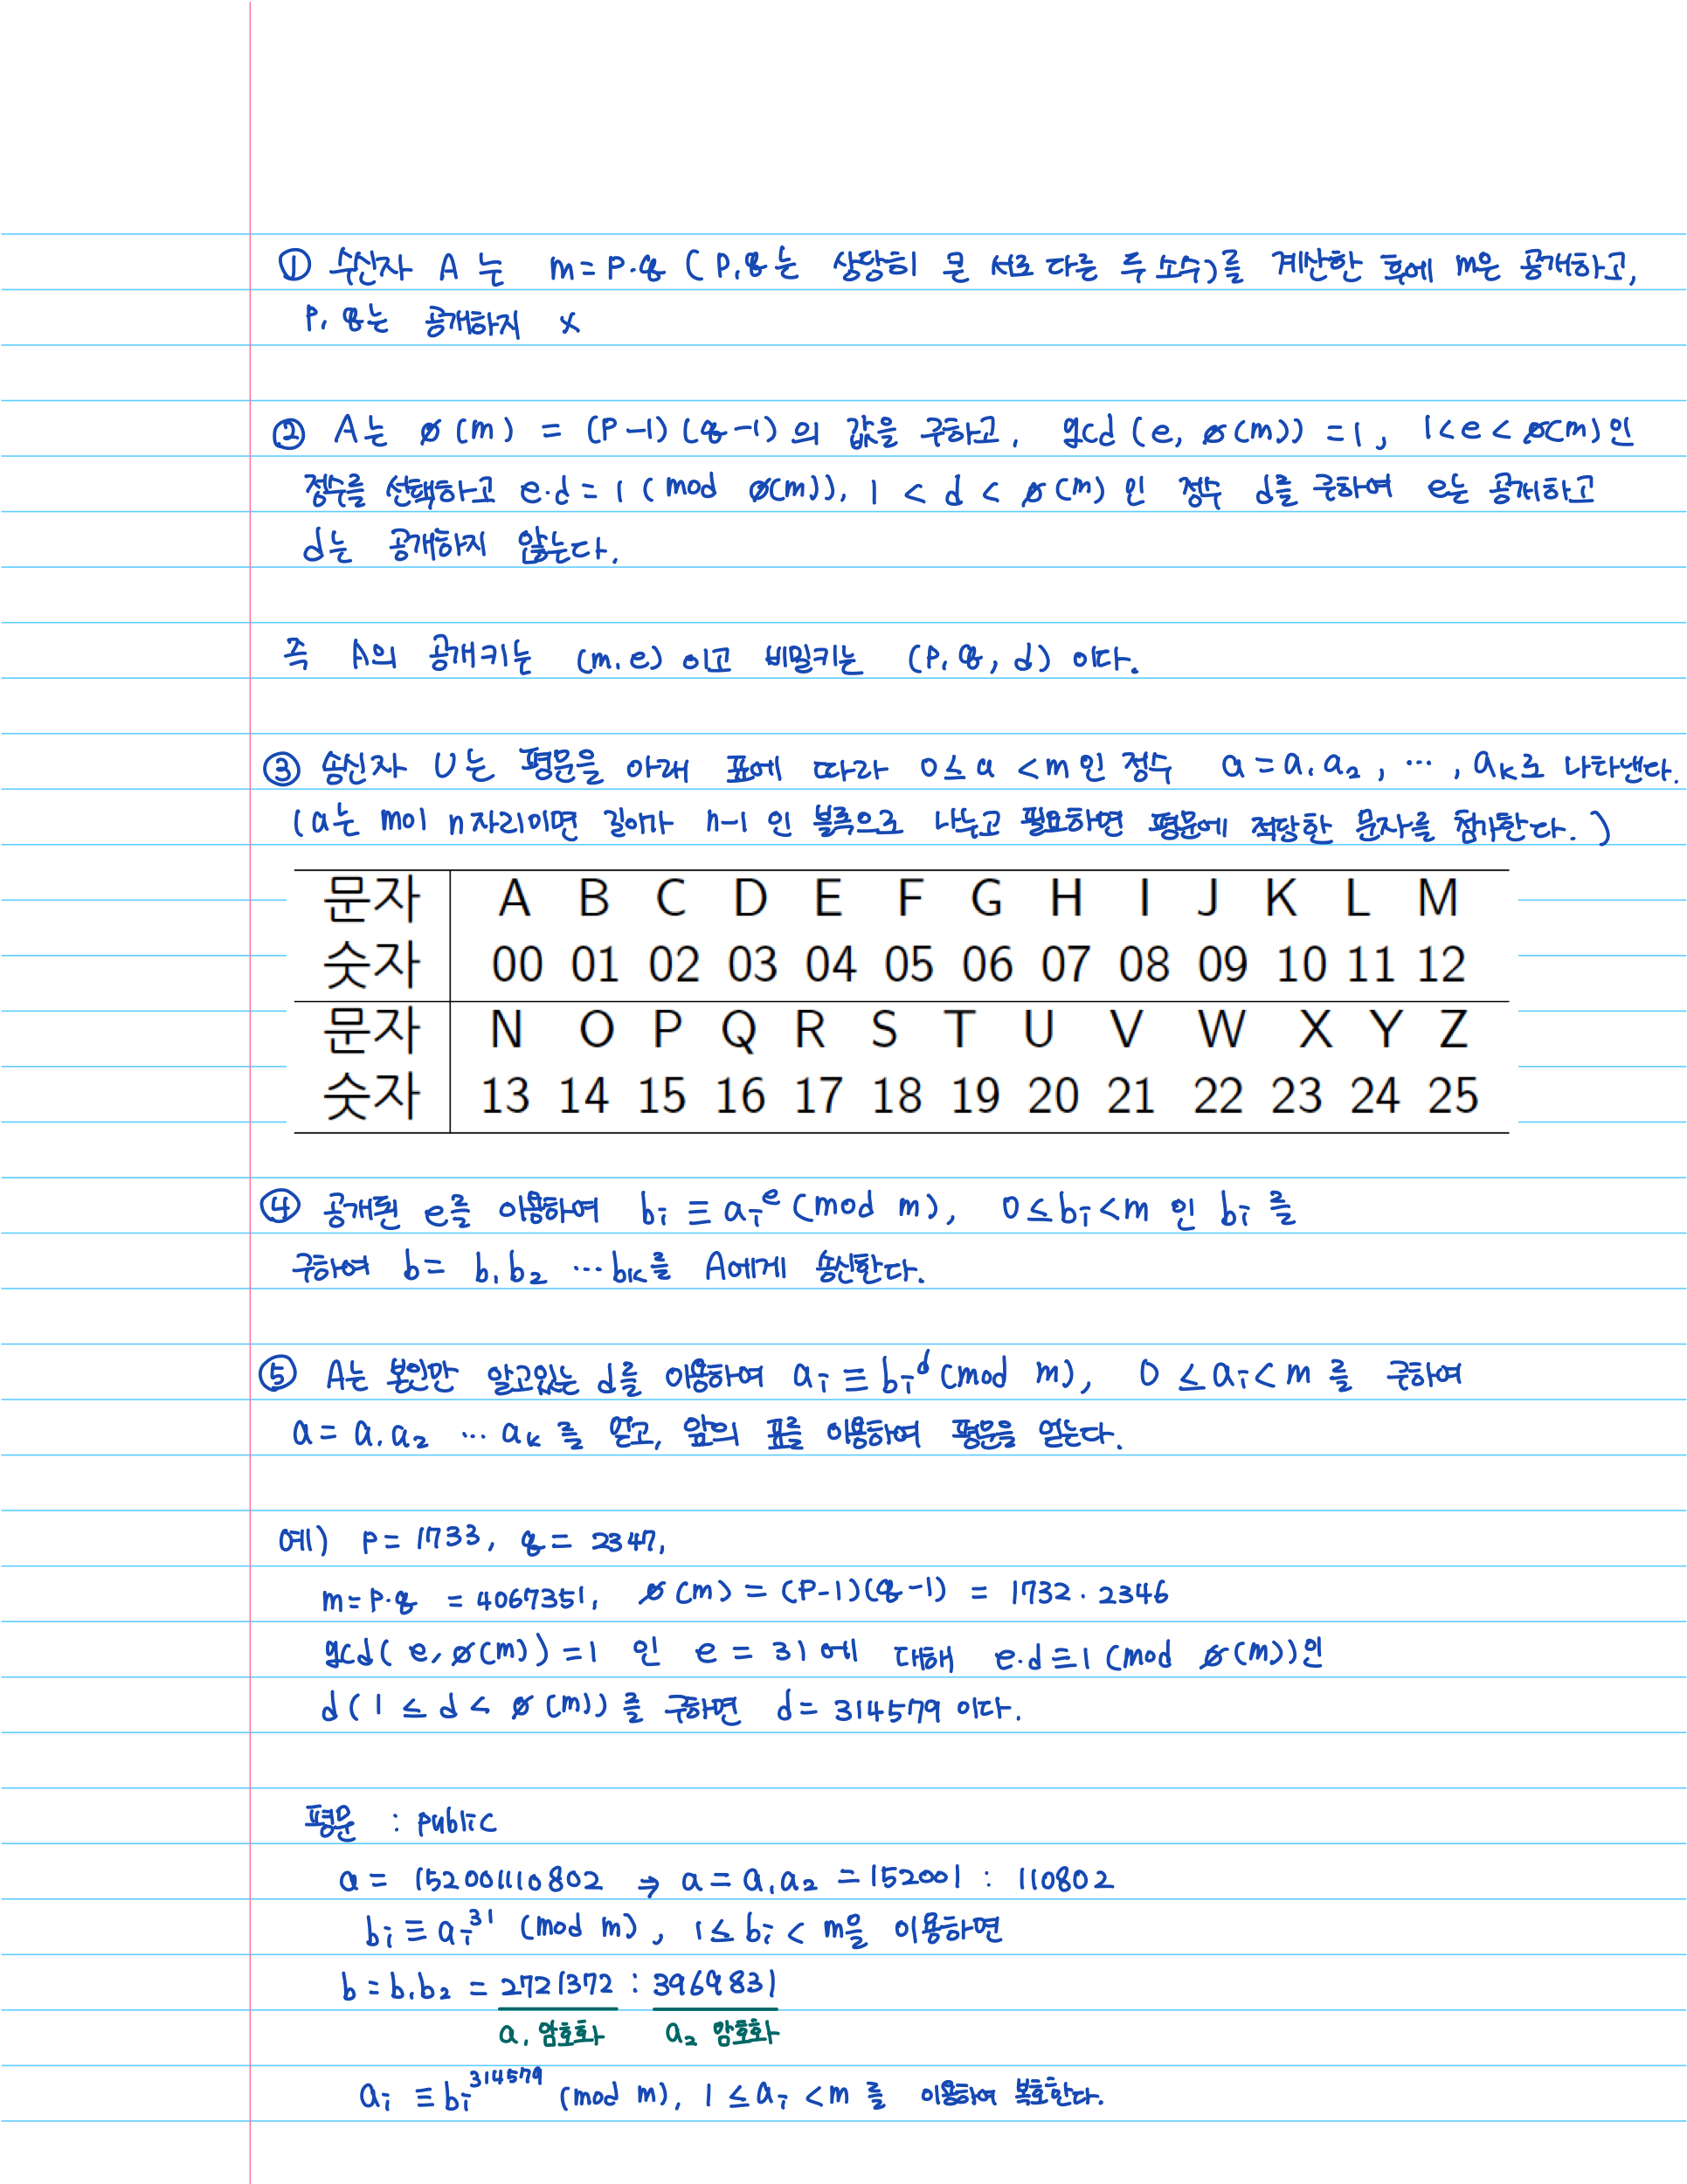 ① 수신자 A 는 m = p·q ( p, q는 상당히 큰 서로 다른 두 소수)를 계산한 후에 m은 공개하고,
p, q는 공개하지 x
② A는 ø(m) = (p-1)(q-1)의 값을 구하고, gcd(e, ø(m)) = 1, 1<e<ø(m)인
정수를 선택하고 e·d = 1 (mod ø(m)), 1 < d < ø(m) 인 정수 d를 구하여 e는 공개하고
d는 공개하지 않는다.
즉 A의 공개키는 (m, e) 이고 비밀키는 (p, q, d) 이다.
③ 송신자 U는 평문을 아래 표에 따라 0≤a<m인 정수 a=a₁a₂, ⋯, aₖ로 나타낸다.
(a는 m이 n자리이면 길이가 n-1 인 블록으로 나누고 필요하면 평문에 적당한 문자를 첨가한다.)
문자 A B C D E F G H I J K L M
숫자 00 01 02 03 04 05 06 07 08 09 10 11 12
문자 N O P Q R S T U V W X Y Z
숫자 13 14 15 16 17 18 19 20 21 22 23 24 25
④ 공개된 e를 이용하여 bᵢ ≡ aᵢᵉ (mod m), 0≤bᵢ<m 인 bᵢ 를
구하여 b= b₁b₂ ⋯bₖ를 A에게 송신한다.
⑤ A는 본인만 알고있는 d를 이용하여 aᵢ ≡ bᵢᵈ (mod m), 0 ≤ aᵢ< m 를 구하여
a = a₁a₂ ⋯ aₖ 를 얻고, 앞의 표를 이용하여 평문을 얻는다.
예) p = 1733, q = 2347,
m=p·q = 4067351, ø(m) = (p-1)(q-1) = 1732·2346
gcd( e, ø(m)) =1 인 e = 31에 대해 e·d≡1 (mod ø(m))인
d( 1 ≤ d < ø(m)) 를 구하면 d= 314579 이다.
평문 : public
a = 152001110802 → a = a₁a₂ = 152001 : 110802
bᵢ ≡ aᵢ³¹ (mod m), 1≤ bᵢ < m을 이용하면
b = b₁b₂ = 2721372 : 3969831
a₁ 암호화 a₂ 암호화
aᵢ ≡ bᵢ³¹⁴⁵⁷⁹ (mod m), 1 ≤ aᵢ < m 를 이용하여 복호한다.